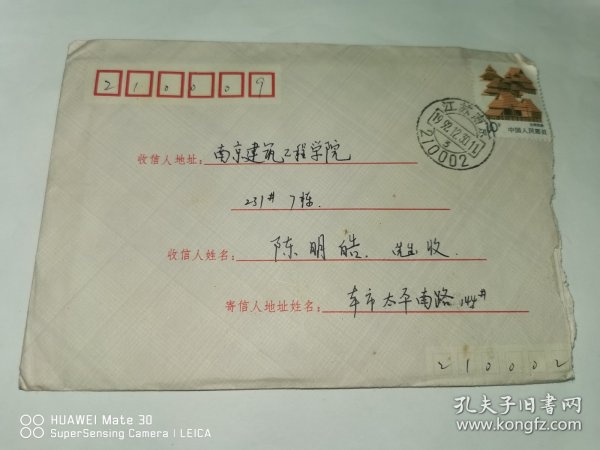 210009
江苏南京
1992.12.30.11
3
210002
中国人民邮政
收信人地址：南京建筑工程学院
231# 7栋.
收信人姓名：陈明皓. 先生收.
寄信人地址姓名：本市太平南路144#
210002
HUAWEI Mate 30
SuperSensing Camera | LEICA
孔夫子旧书网
www.kongfz.com